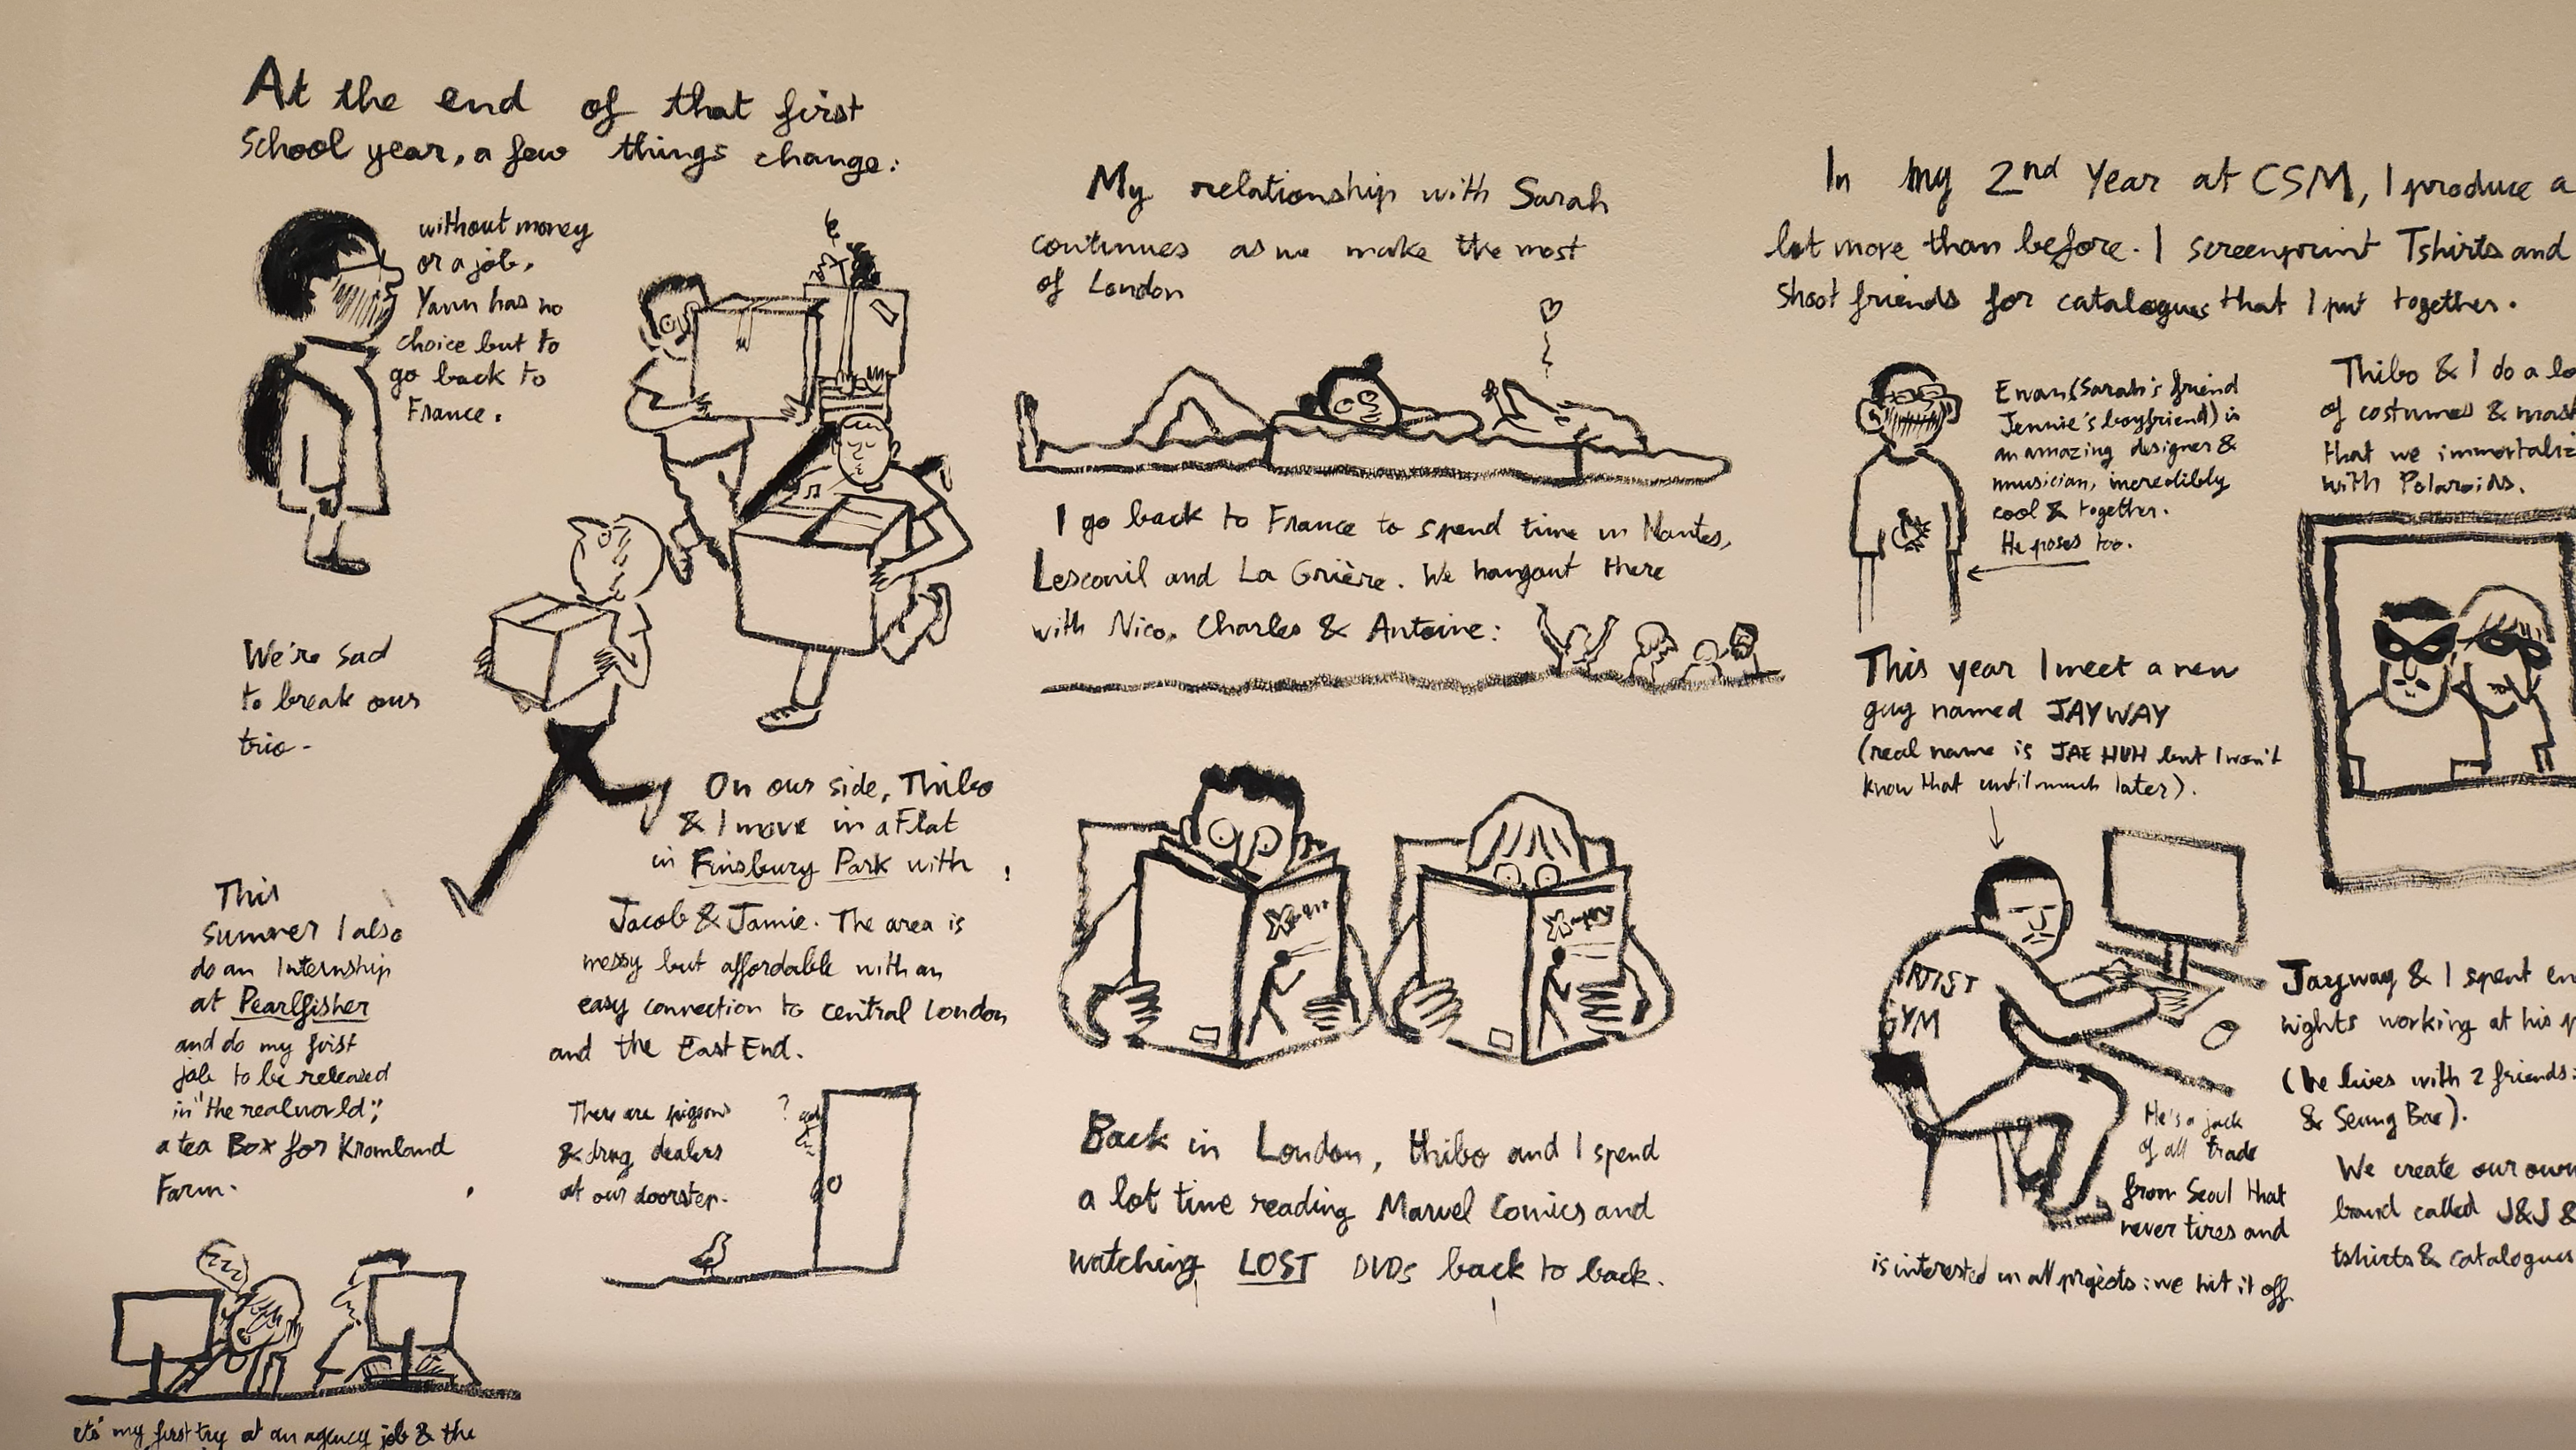 At the end of that first
School year, a few things change:
without money
or a job,
Yann has no
choice but to
go back to
France.
We're sad
to break our
trio-
On our side, Thibo
& I move in a Flat
in Finsbury Park with
Jacob & Jamie. The area is
messy but affordable with an
easy connection to central London
and the East End.
There are pigeons
& drug dealers
at our doorstep.
?
This
summer I also
do an Internship
at Pearlfisher
and do my first
job to be released
in "the real world";
a tea Box for Kromland
Farm.
it's my first try at an agency job & the
My relationship with Sarah
continues as we make the most
of London
I go back to France to spend time in Nantes,
Lesconil and La Grière. We hangout there
with Nico, Charles & Antoine:
X-men
X-men
Back in London, thibo and I spend
a lot time reading Marvel Comics and
watching LOST DVDs back to back.
In my 2nd Year at CSM, I produce a
lot more than before. I screenprint Tshirts and
shoot friends for catalogues that I put together.
Ewan (Sarah's friend
Jennie's boyfriend) is
an amazing designer &
musician, incredibly
cool & together.
He poses too.
Thibo & I do a lo
of costumes & mas
that we immortaliz
with Polaroids.
This year I meet a new
guy named JAYWAY
(real name is JAE HUH but I won't
know that until much later).
ARTIST
GYM
He's a jack
of all trade
from Seoul that
never tires and
is interested in all projects: we hit it off.
Jayway & I spent en
nights working at his
(he lives with 2 friends:
& Seung Bae).
We create our own
brand called J&J &
tshirts & catalogues